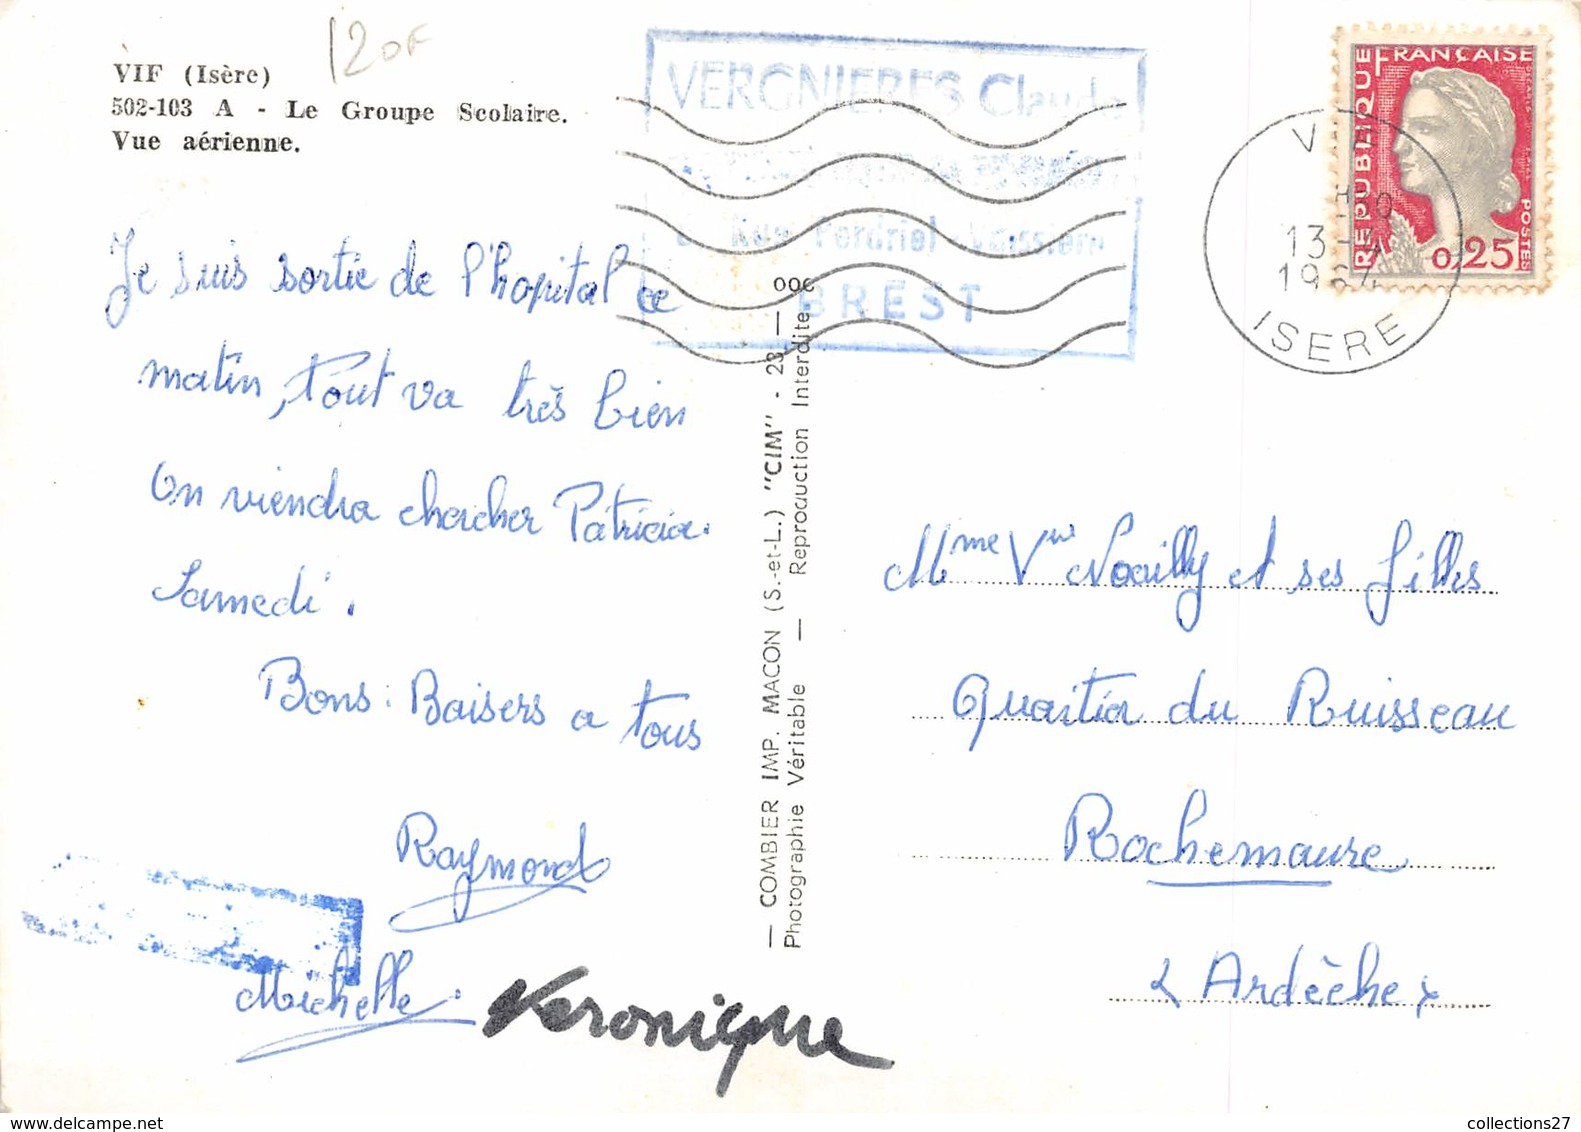 VIF (Isère)
502-103 A - Le Groupe Scolaire.
Vue aérienne.
120F
VERGNIERES Claude
BREST
RÉPUBLIQUE FRANÇAISE
POSTES
0,25
13-4
1964
ISERE
Je suis sortie de l'hopital ce
matin, tout va très bien
On viendra chercher Patricia.
Samedi.
Bons Baisers a tous
Raymond
Michelle.
Veronique
— COMBIER IMP. MACON (S.-et-L.) "CIM" - 23 —
Photographie Véritable — Reproduction Interdite
Mme Vve Noailly et ses filles
Quartier du Ruisseau
Rochemaure
Ardèche
collections27